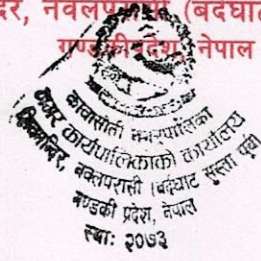 नवलपरासी (बर्दघाट
गण्डकी प्रदेश, नेपाल
कावासोती नगरपालिका
नगर कार्यपालिकाको कार्यालय
नवलपरासी (बर्दघाट सुस्ता पूर्व)
गण्डकी प्रदेश, नेपाल
स्था: २०७३